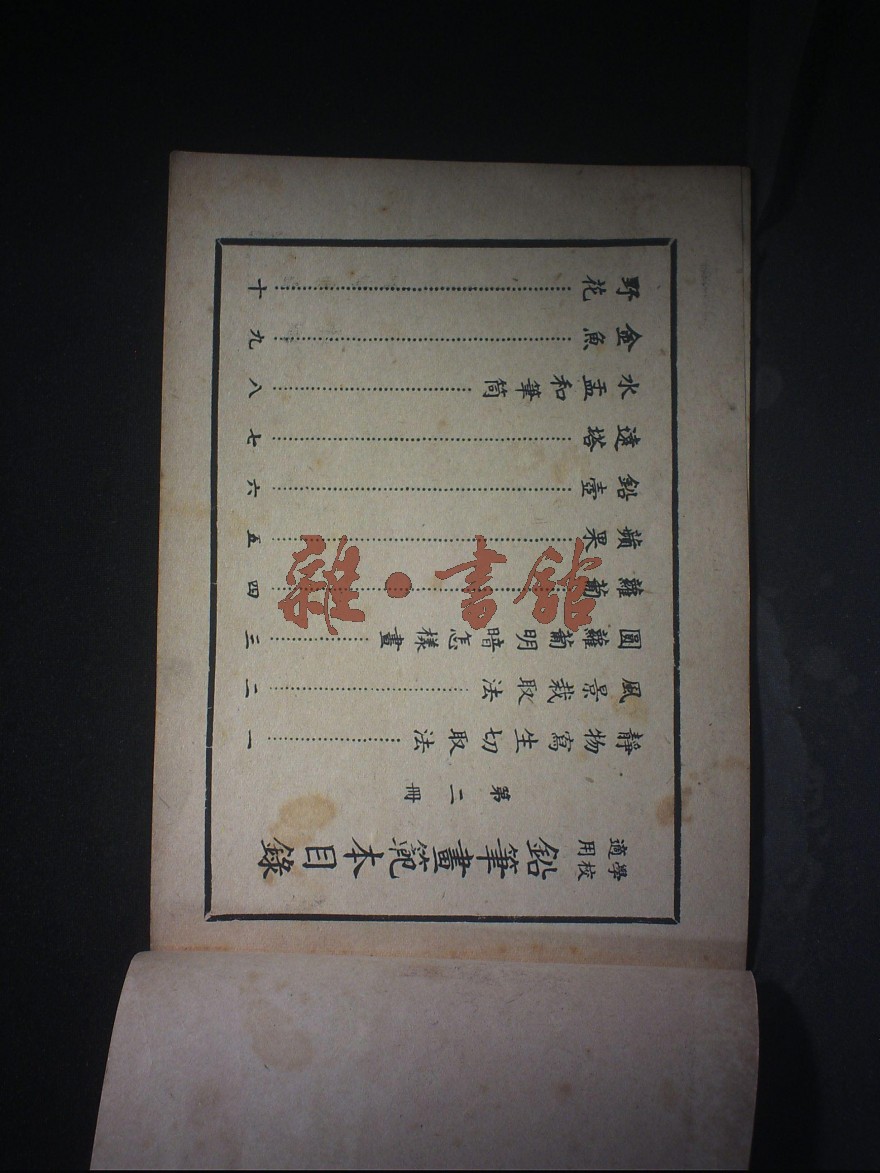 學校適用
鉛筆畫範本目錄
第二冊
靜物寫生切取法……一
風景栽取法……二
圓蘿蔔明暗怎樣畫……三
蘿蔔……四
蘋果……五
鉛壺……六
遠塔……七
水盂和筆筒……八
金魚……九
野花……十
雜·書館